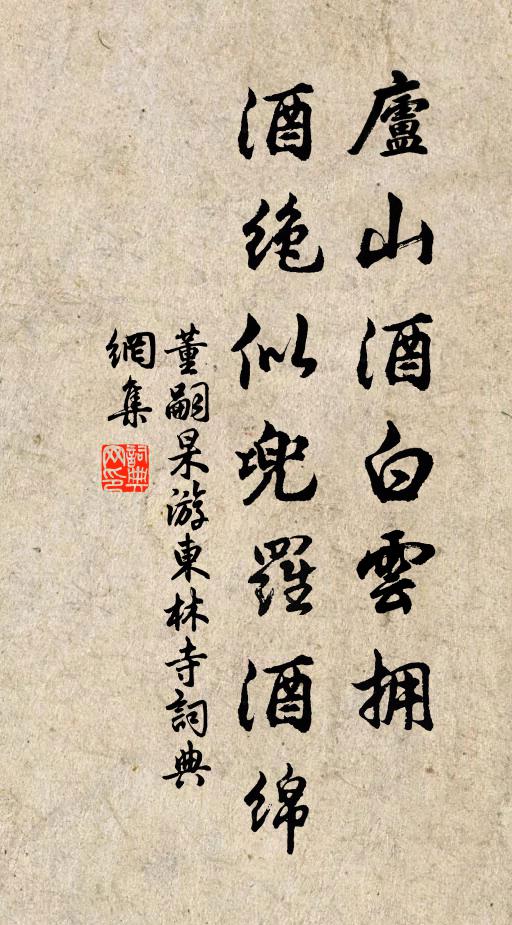 廬山酒白雲拥
酒絶似兜羅酒綿
董嗣杲游東林寺詞典
網集
詞典
网印